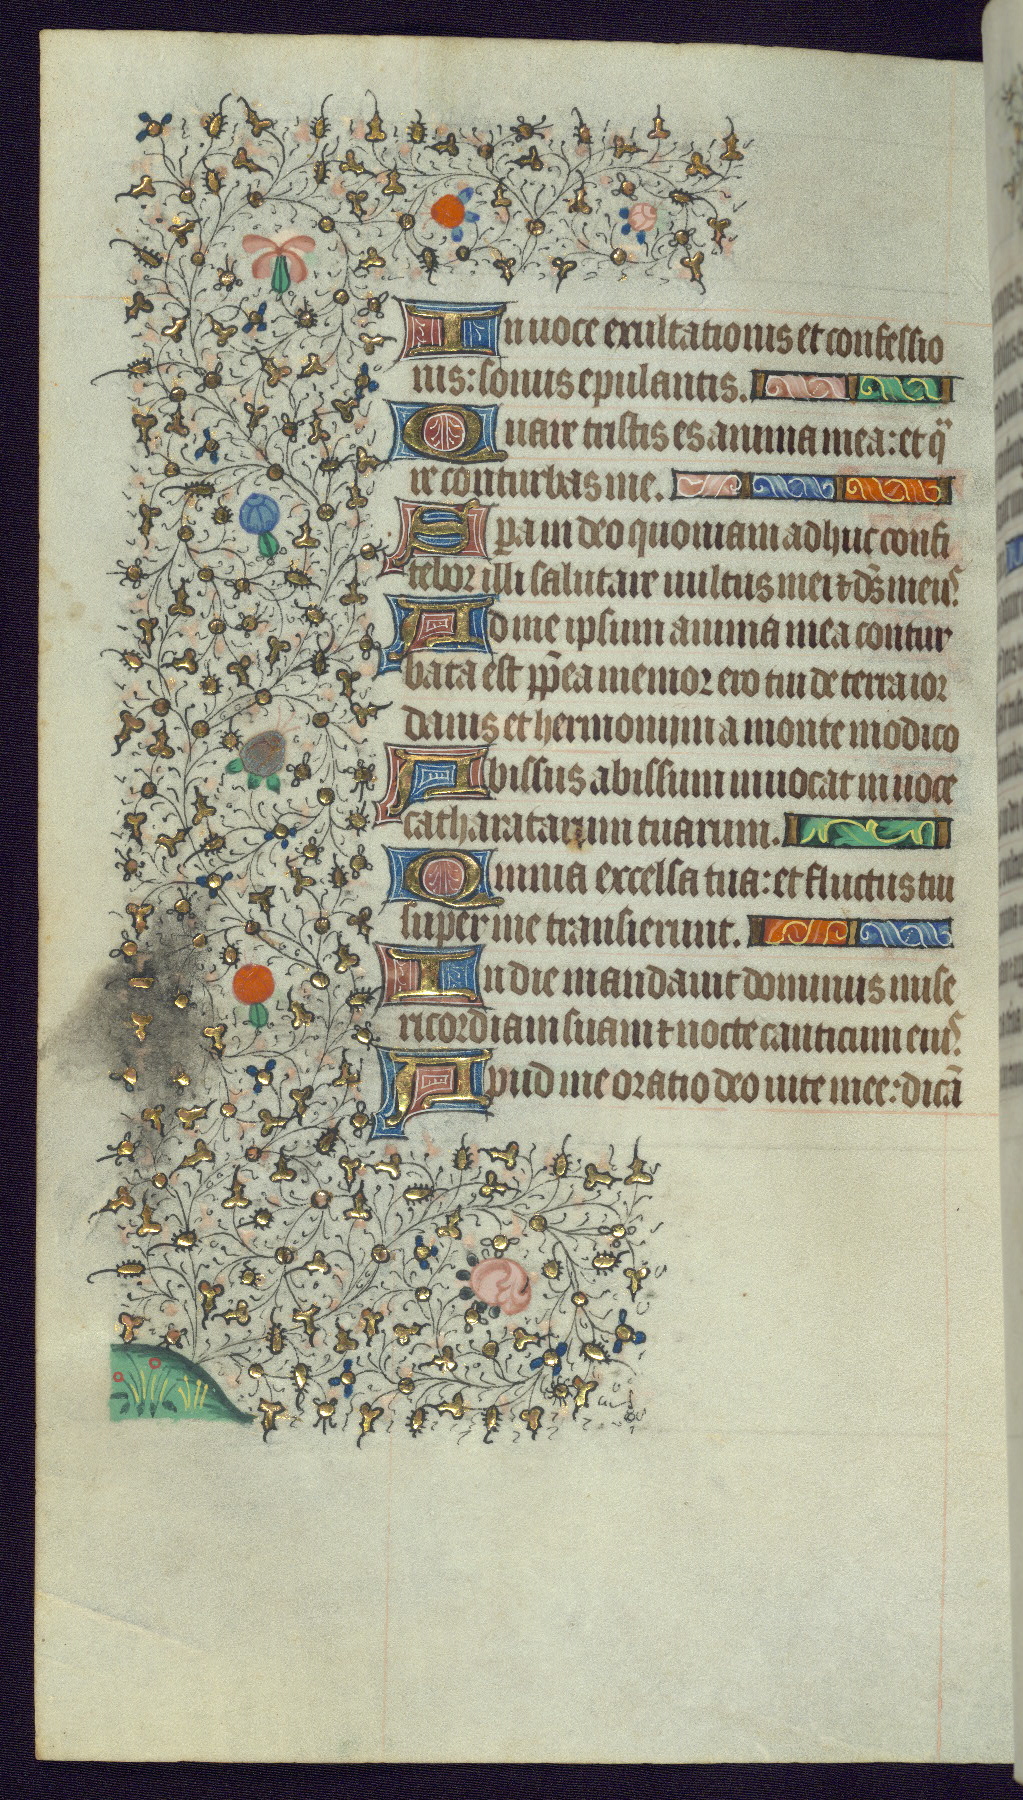 In uoce exultationis et confessio
nis: sonus epulantis.
Quare tristis es anima mea: et q̄
re conturbas me.
Spera in deo quoniam adhuc confi
tebor illi salutare uultus mei ⁊ dīs meus.
Ad me ipsum anima mea contur
bata est pp̄ea memor ero tui de terra ior
danis et hermonijm a monte modico
Abissus abissum inuocat in uoce
catharatarum tuarum.
Omnia excelsa tua: et fluctus tui
super me transierunt.
In die mandauit dominus mise
ricordiam suam ⁊ nocte canticum eius.
Apud me oratio deo uite mee: dicā